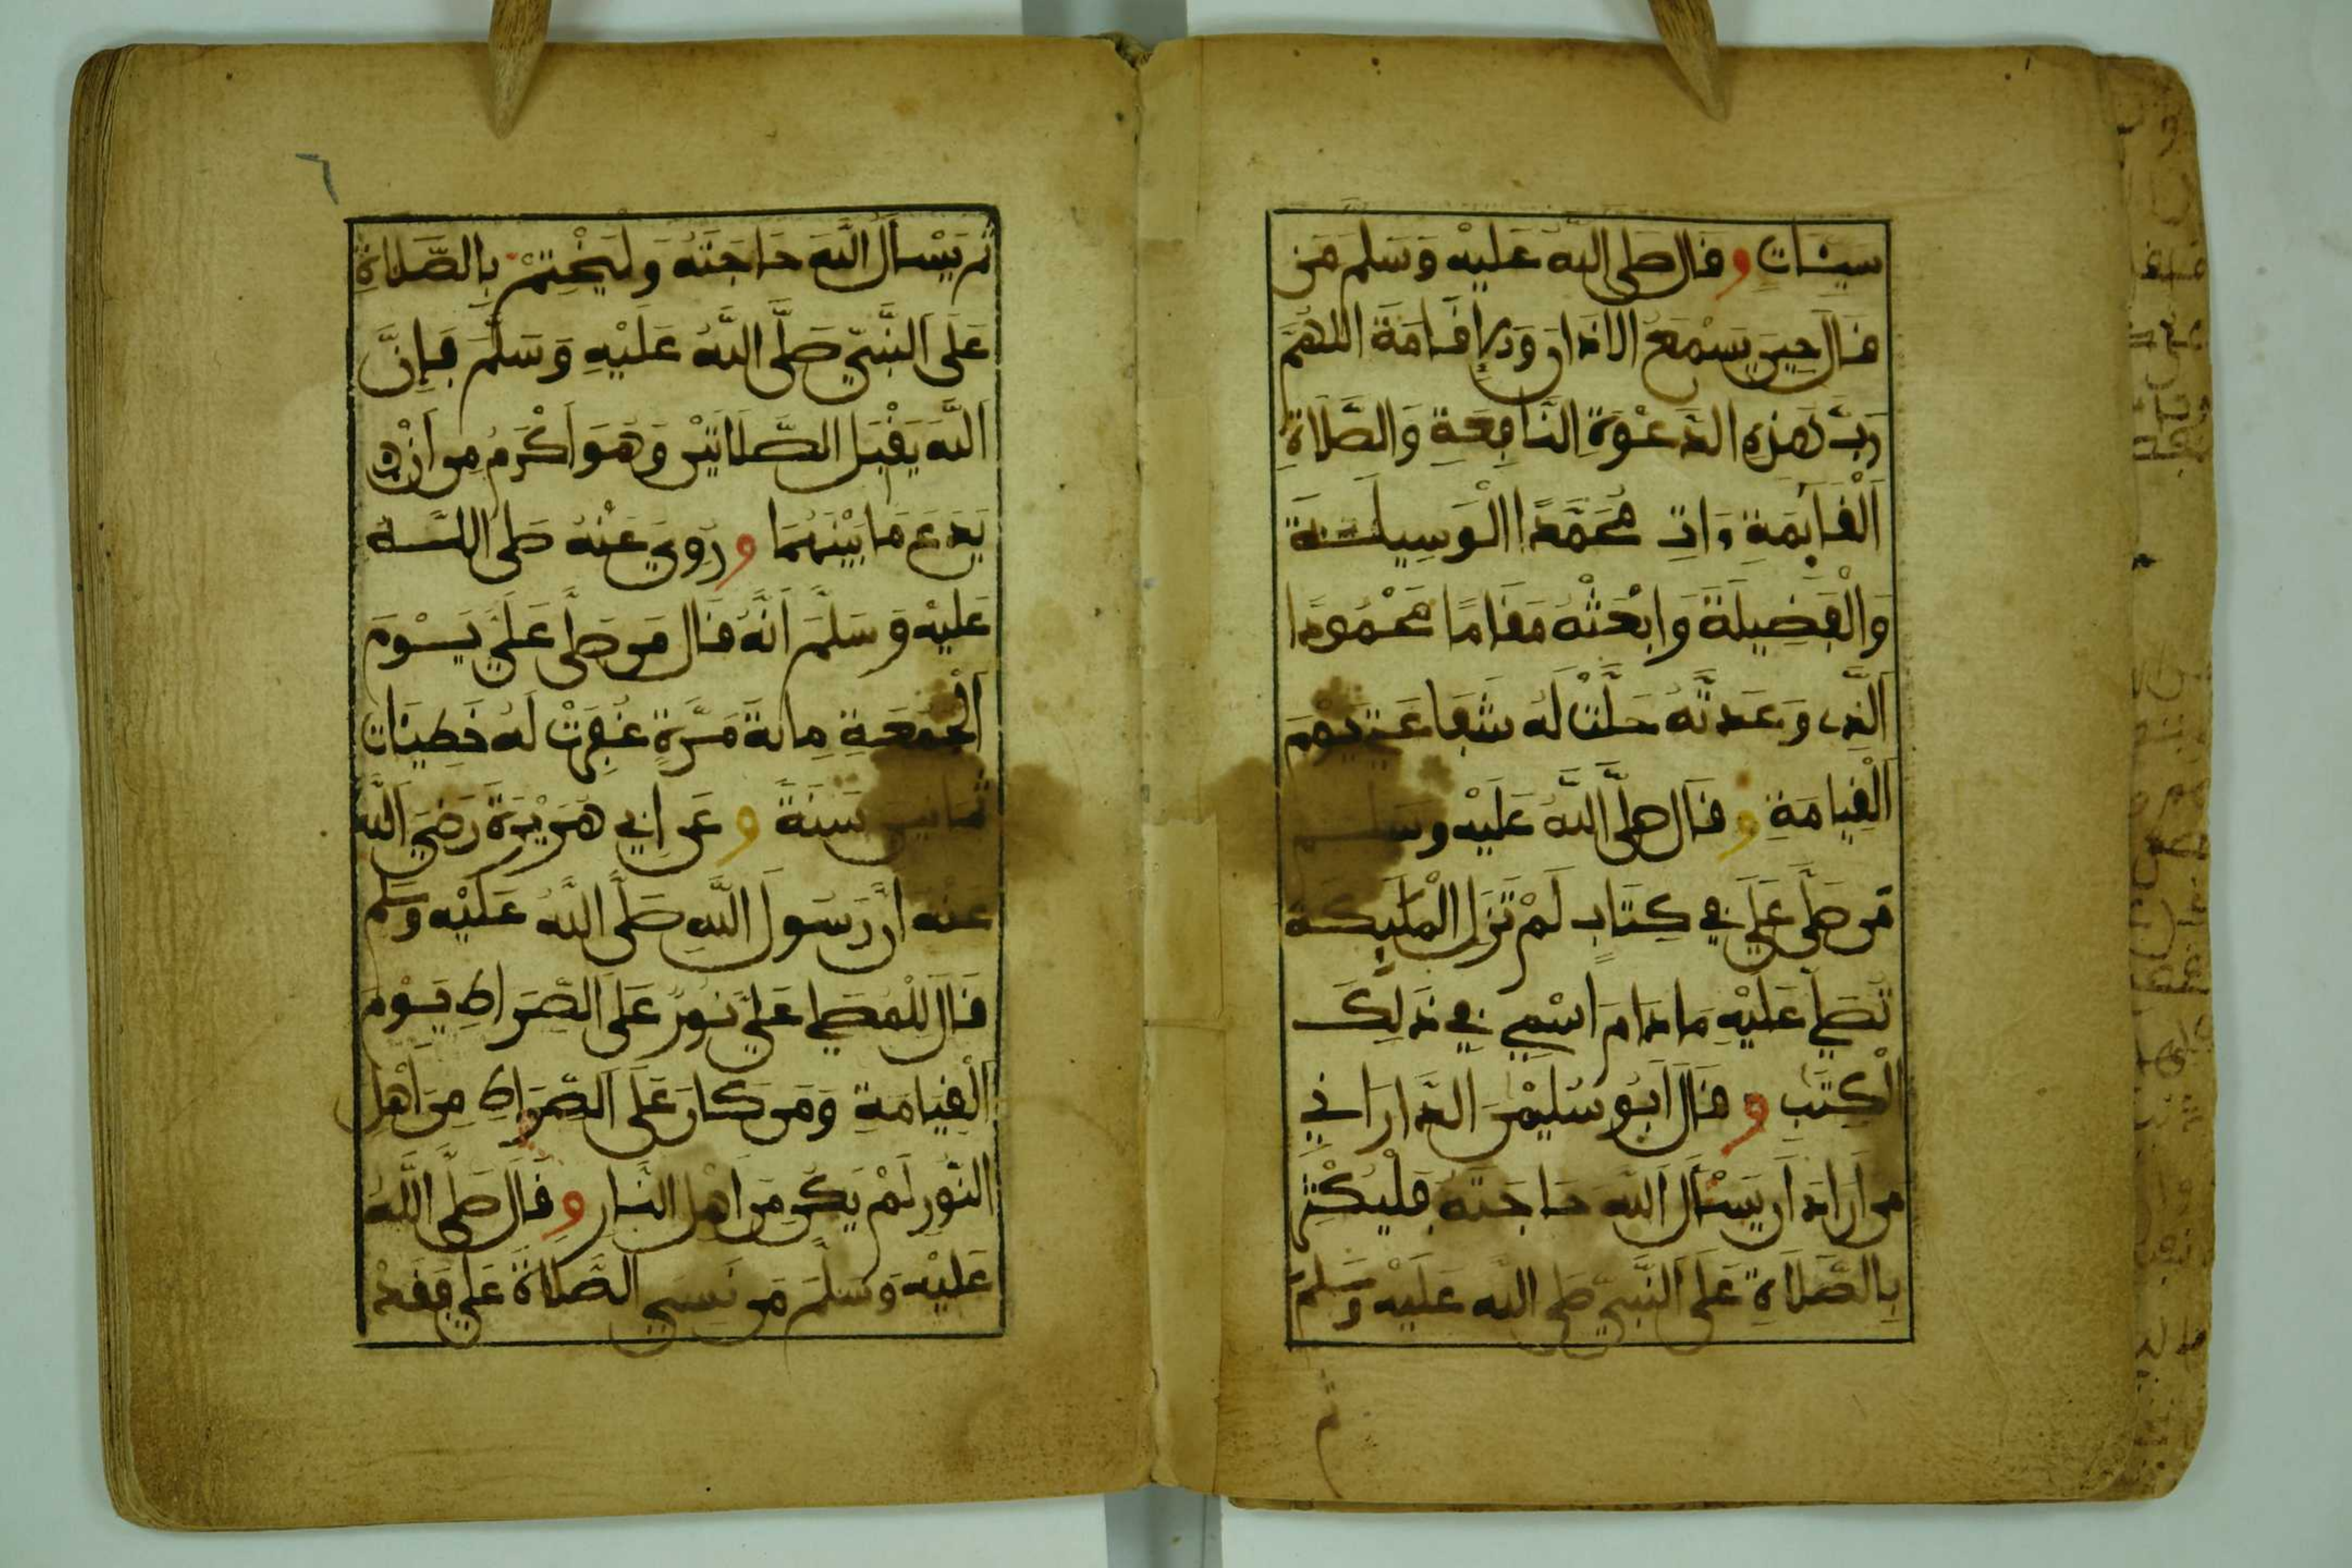 سَيِّئَاتٍ وقال صلى الله عليه وسلم من
قال حين يسمع الاذان والإقامة اللهم
رب هذه الدعوة النافعة والصلاة
القائمة ءات محمدا الوسيلة
والفضيلة وابعثه مقاما محمودا
الذي وعدته حلت له شفاعتي يوم
القيامة وقال صلى الله عليه وسلم
من صلى علي في كتاب لم تزل الملئكة
تصلي عليه ما دام اسمي في ذلك
الكتب وقال ابو سليمن الداراني
من اراد ان يسئل الله حاجته فليكثر
بالصلاة على النبي صلى الله عليه وسلم
ثم
٦
ثم يسأل الله حاجته وليختم بالصلاة
على النبي صلى الله عليه وسلم فإن
الله يقبل الصلاتين وهو اكرم من ان
يدع ما بينهما وروي عنه صلى الله
عليه وسلم انه قال من صلى علي يوم
الجمعة مائة مرة غفرت له خطيئات
ثمانين سنة وعن ابي هريرة رضي الله
عنه ان رسول الله صلى الله عليه وسلم
قال للمصلي علي نور على الصراط يوم
القيامة ومن كان على الصراط من اهل
النور لم يكن من اهل النار وقال صلى الله
عليه وسلم من نسي الصلاة علي فقد